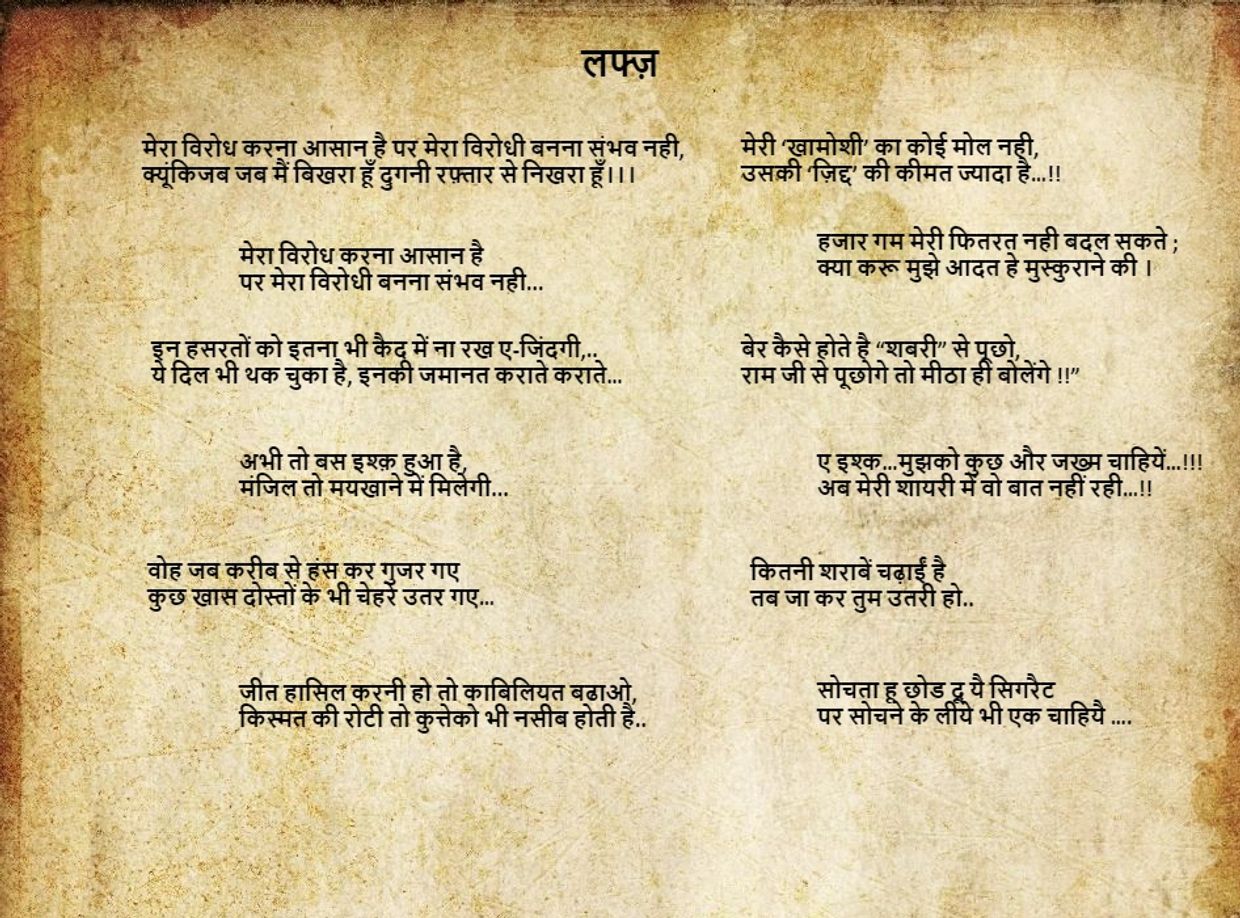 लफ्ज़
मेरा विरोध करना आसान है पर मेरा विरोधी बनना संभव नही,
क्यूंकिजब जब मैं बिखरा हूँ दुगनी रफ़्तार से निखरा हूँ।।।
मेरा विरोध करना आसान है
पर मेरा विरोधी बनना संभव नही...
इन हसरतों को इतना भी कैद में ना रख ए-जिंदगी,..
ये दिल भी थक चुका है, इनकी जमानत कराते कराते...
अभी तो बस इश्क़ हुआ है,
मंजिल तो मयखाने में मिलेगी...
वोह जब करीब से हंस कर गुजर गए
कुछ खास दोस्तों के भी चेहरे उतर गए...
जीत हासिल करनी हो तो काबिलियत बढाओ,
किस्मत की रोटी तो कुत्तेको भी नसीब होती है..
मेरी ‘खामोशी’ का कोई मोल नही,
उसकी ‘ज़िद्द’ की कीमत ज्यादा है...!!
हजार गम मेरी फितरत नही बदल सकते ;
क्या करू मुझे आदत हे मुस्कुराने की ।
बेर कैसे होते है “शबरी” से पूछो,
राम जी से पूछोगे तो मीठा ही बोलेंगे !!”
ए इश्क...मुझको कुछ और जख्म चाहियें...!!!
अब मेरी शायरी में वो बात नहीं रही...!!
कितनी शराबें चढ़ाईं है
तब जा कर तुम उतरी हो..
सोचता हू छोड दू यै सिगरैट
पर सोचने के लीये भी एक चाहियै ....